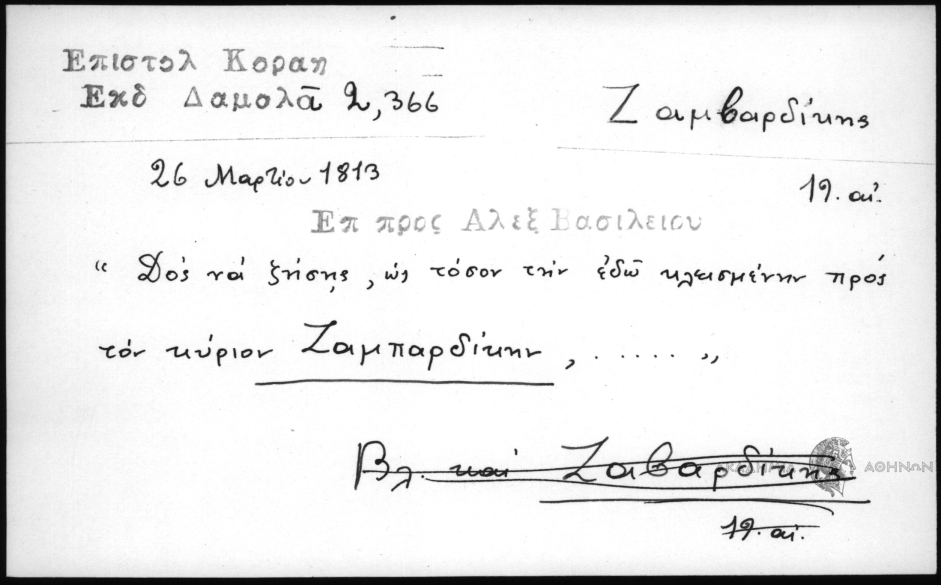 Επιστολ Κοραη
Εκδ Δαμολᾶ 2,366
Ζαμβαρδίκης
26 Μαρτίου 1813
19. αἰ.
Επ προς Αλεξ Βασιλειου
“ Δός νά ζήσῃς, ὡς τόσον τήν ἐδῶ κλεισμένην πρός
τόν κύριον Ζαμπαρδίκην, ...... „
Βλ. καί Ζαβαρδίκης
ΑΘΗΝΩΝ
19. αἰ.